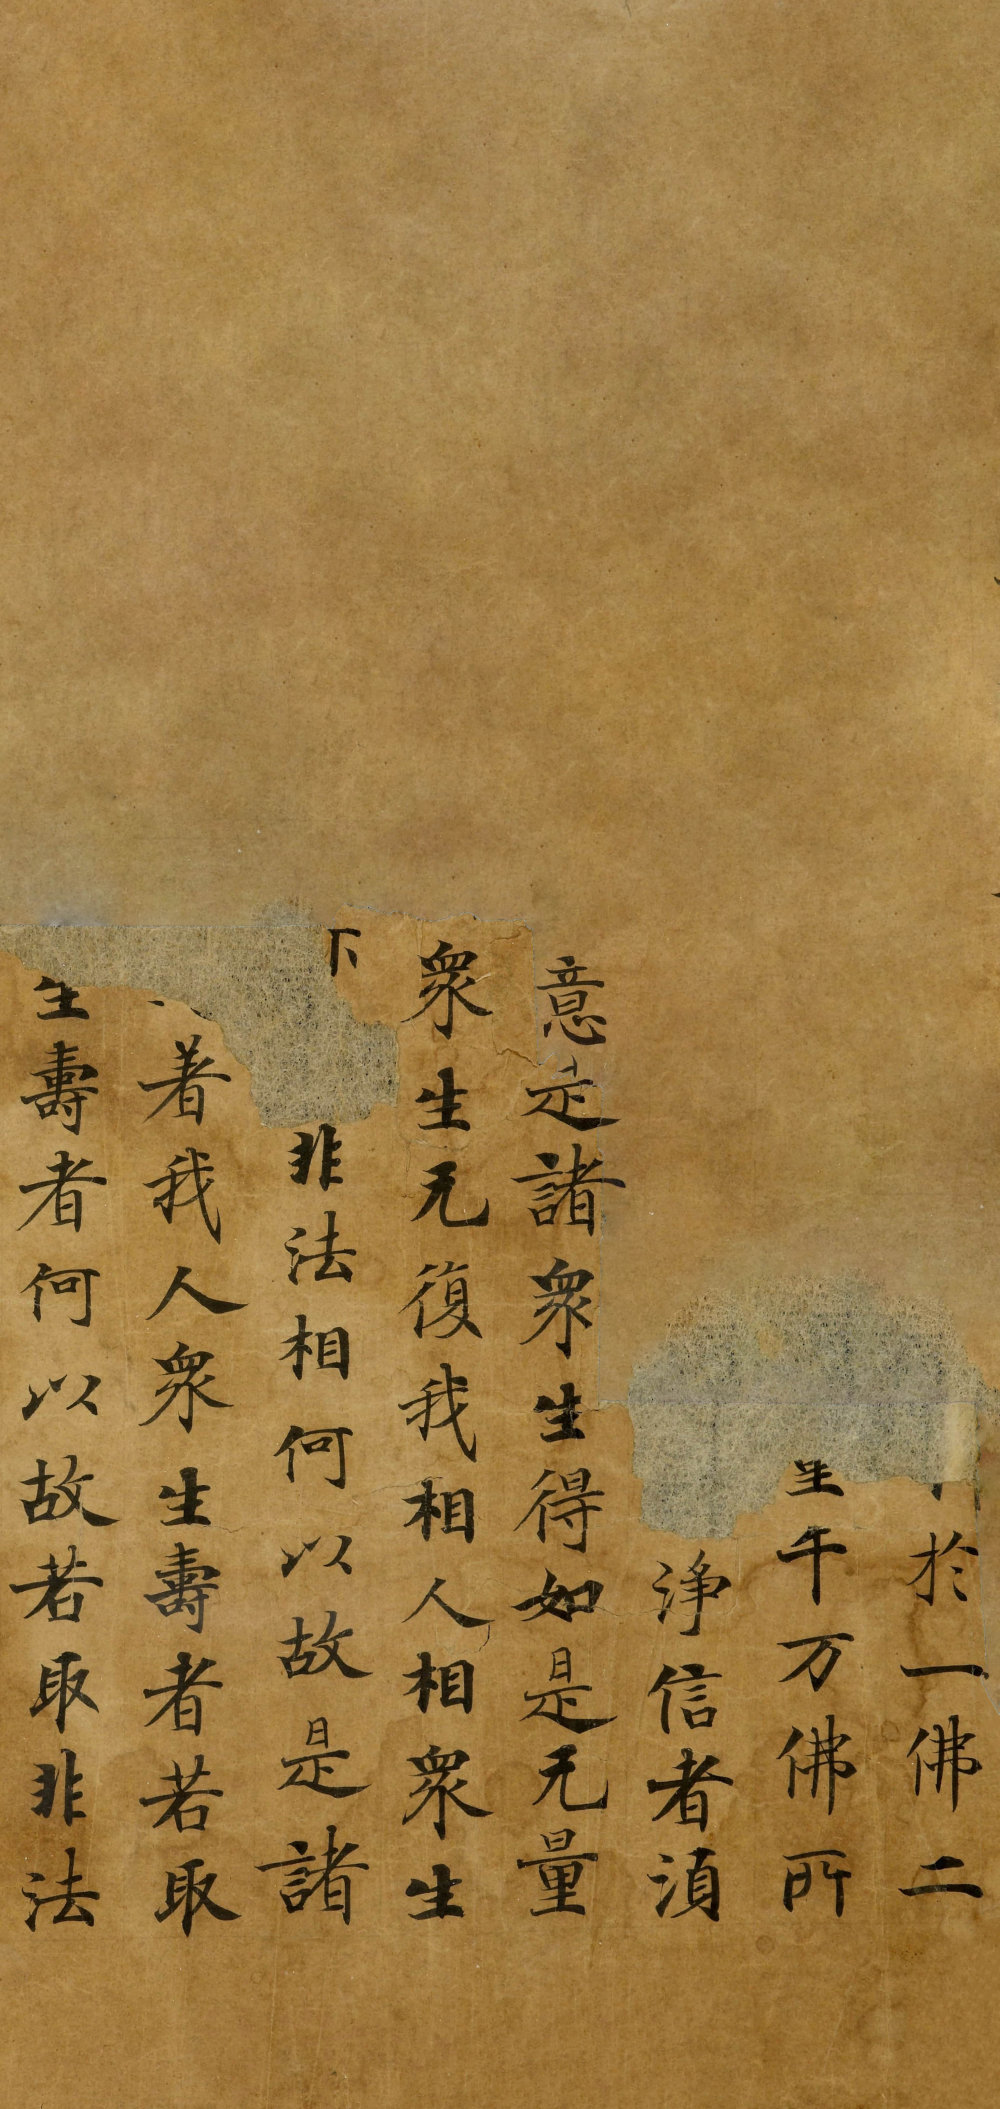 於一佛二
千万佛所
淨信者湏
意是諸衆生得如是无量
衆生无復我相人相衆生
非法相何以故是諸
著我人衆生壽者若取
生壽者何以故若取非法